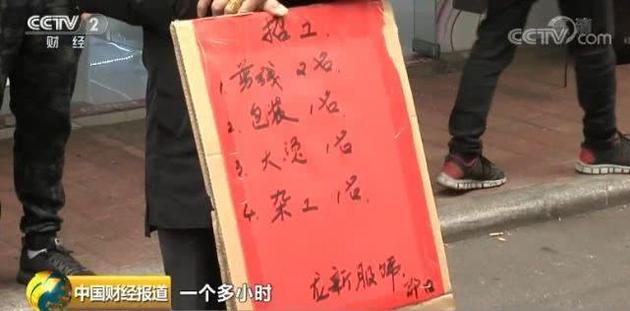 CCTV 2
财经
CCTV.com
招工
1. 剪线 2名.
2. 包装 1名
3. 大烫 1名
4. 杂工 1名.
新服饰.
中国财经报道 一个多小时